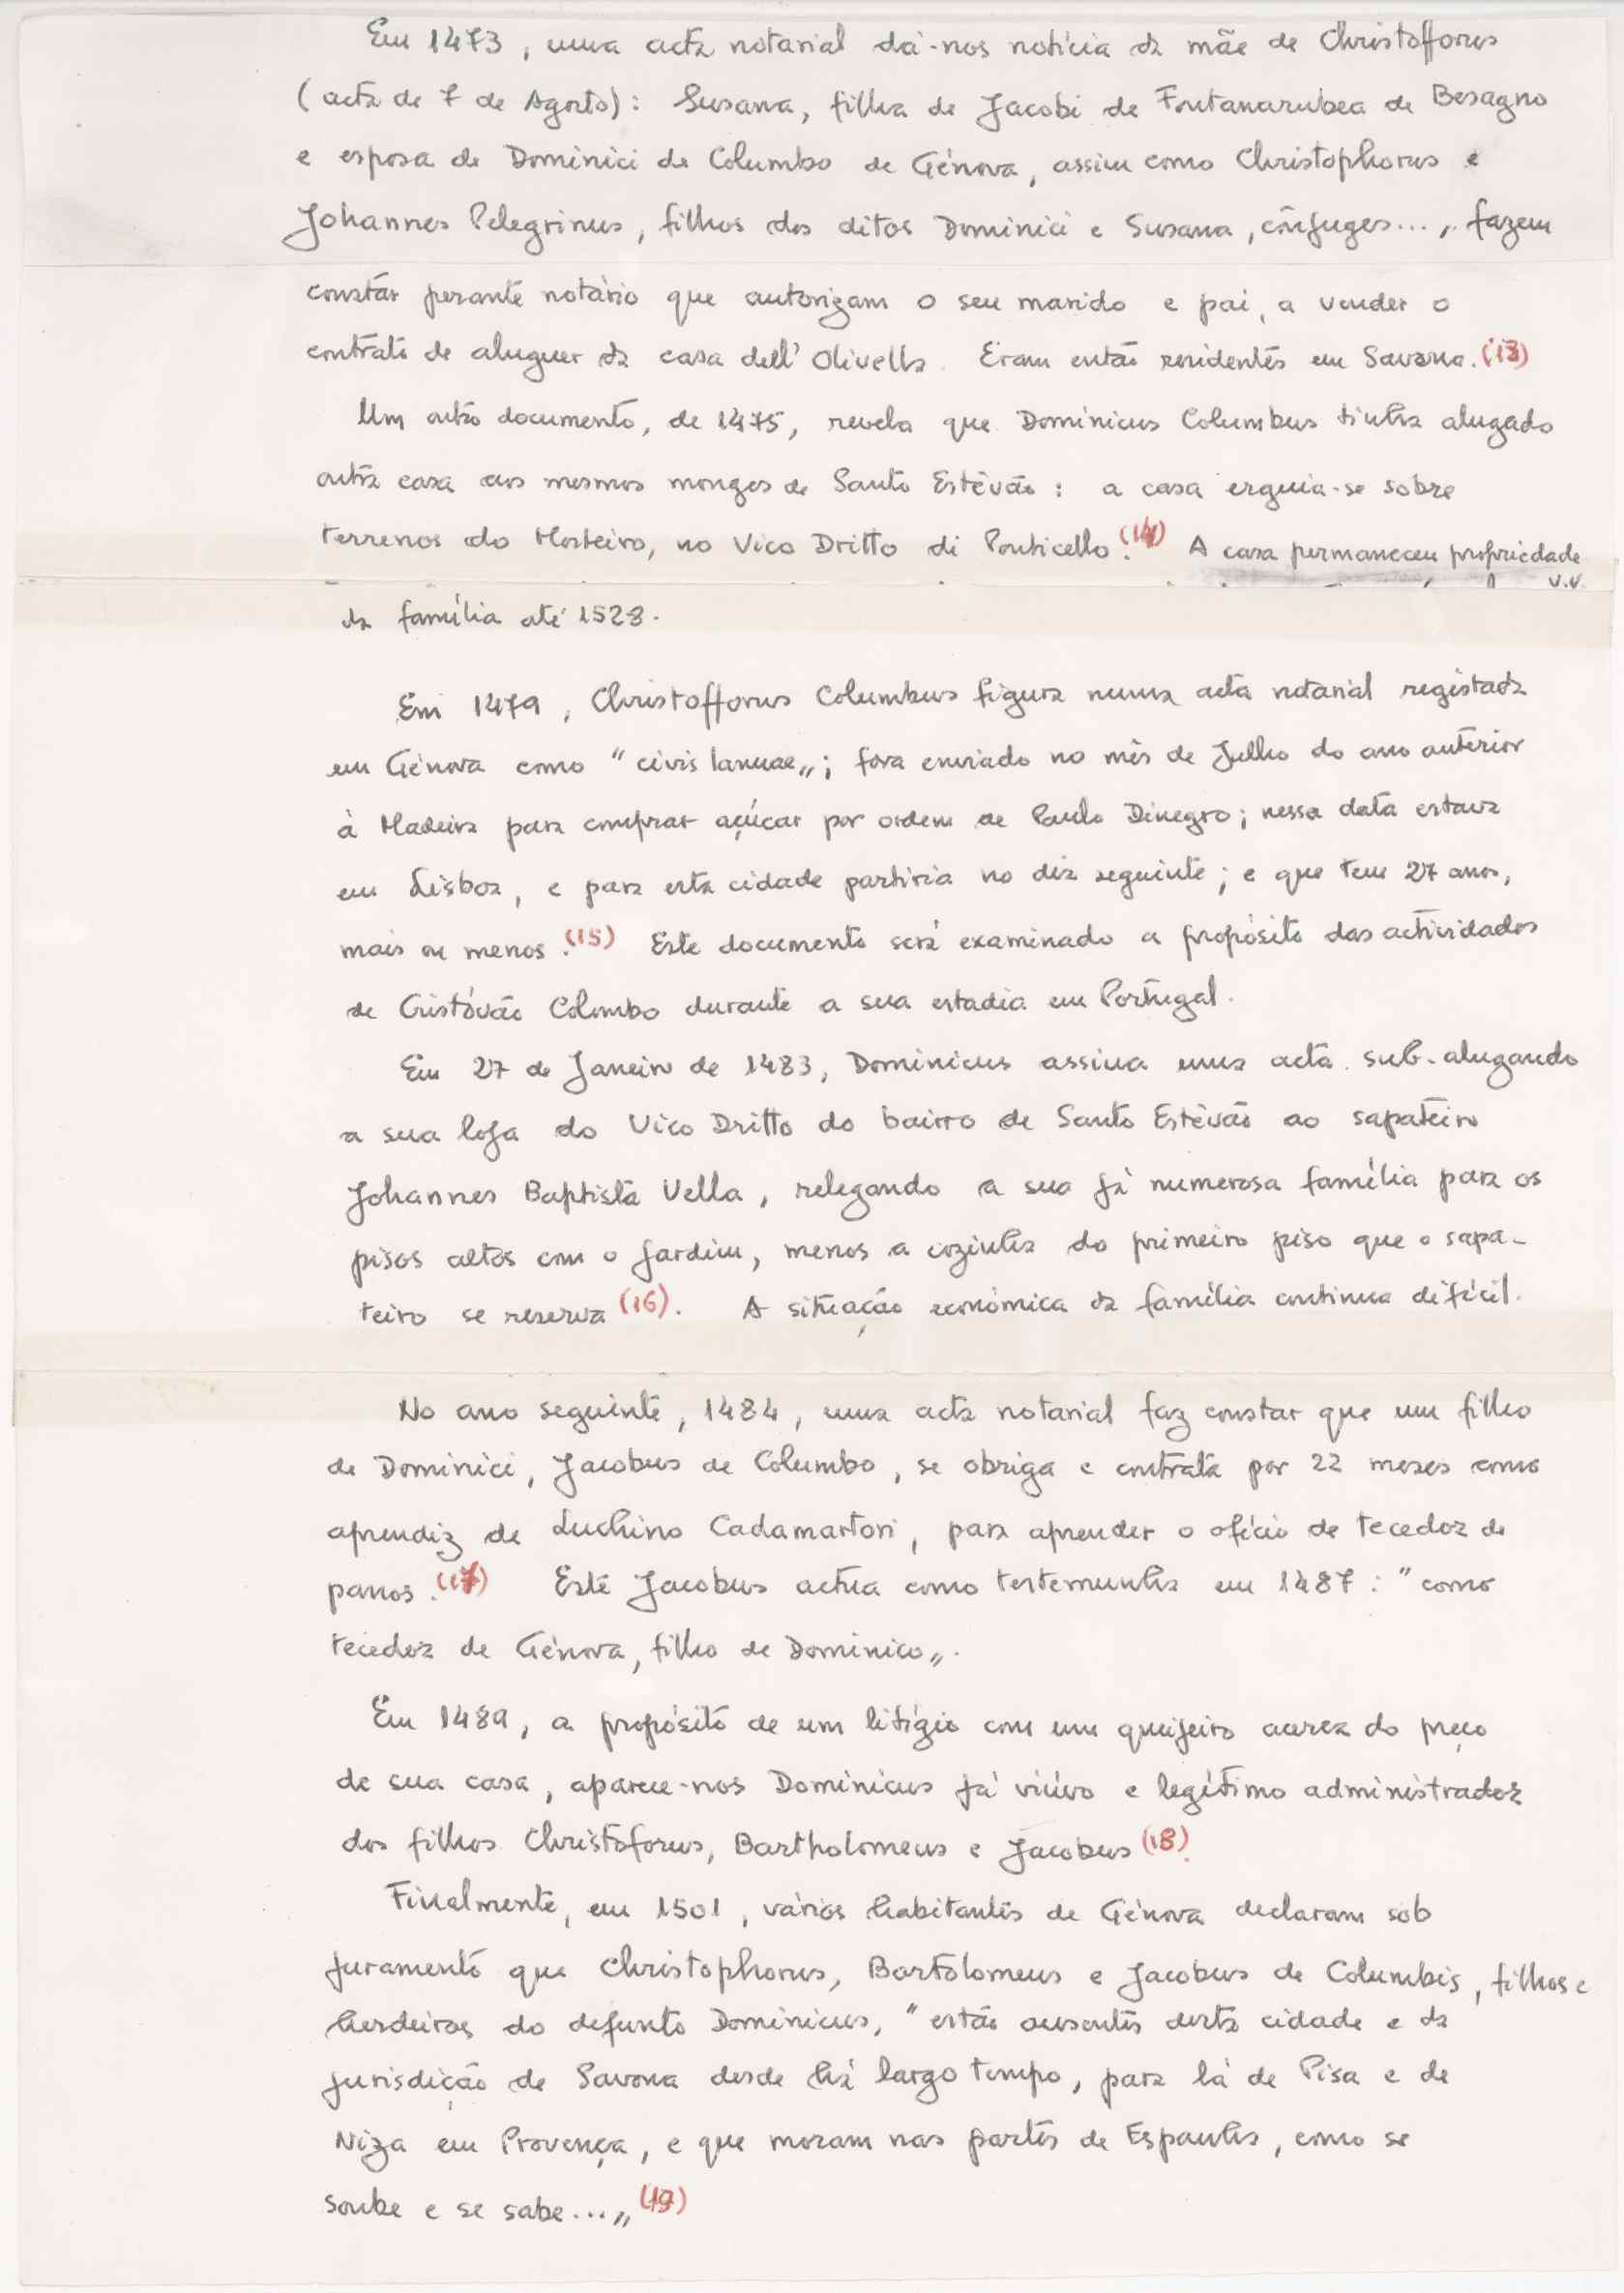 Em 1473, uma acta notarial dá-nos notícia da mãe de Christofforus
(acta de 7 de Agosto): Susana, filha de Jacobi de Fontanarubea de Besagno
e esposa de Dominici de Columbo de Génova, assim como Christophorus e
Johannes Pelegrinus, filhos dos ditos Dominici e Susana, cônjuges..., fazem
constar perante notário que autorizam o seu marido e pai, a vender o
contrato de aluguer da casa dell' Olivella. Eram então residentes em Savona. (13)
Um outro documento, de 1475, revela que Dominicus Columbus tinha alugado
outra casa aos mesmos monges de Santo Estêvão: a casa erguia-se sobre
terrenos do Mosteiro, no Vico Dritto di Ponticello. (14) A casa permaneceu propriedade
v.v.
da família até 1528.
Em 1479, Christofforus Columbus figura numa acta notarial registada
em Génova como "civis Ianuae„; fora enviado no mês de Julho do ano anterior
à Madeira para comprar açúcar por ordem de Paulo Dinegro; nessa data estava
em Lisboa, e para esta cidade partiria no dia seguinte; e que tem 27 anos,
mais ou menos. (15) Este documento será examinado a propósito das actividades
de Cristóvão Colombo durante a sua estadia em Portugal.
Em 27 de Janeiro de 1483, Dominicus assina uma acta sub-alugando
a sua loja do Vico Dritto do bairro de Santo Estêvão ao sapateiro
Johannes Baptista Vella, relegando a sua já numerosa família para os
pisos altos com o jardim, menos a cozinha do primeiro piso que o sapa-
teiro se reserva (16). A situação económica da família continua difícil.
No ano seguinte, 1484, uma acta notarial faz constar que um filho
de Dominici, Jacobus de Columbo, se obriga e contrata por 22 meses como
aprendiz de Luchino Cadamartori, para aprender o ofício de tecedor de
panos. (17) Este Jacobus actua como testemunha em 1487: "como
tecedor de Génova, filho de Dominico„.
Em 1489, a propósito de um litígio com um queijeiro acerca do preço
de sua casa, aparece-nos Dominicus já viúvo e legítimo administrador
dos filhos Christoforus, Bartholomeus e Jacobus (18).
Finalmente, em 1501, vários habitantes de Génova declaram sob
juramento que Christophorus, Bartolomeus e Jacobus de Columbis, filhos e
herdeiros do defunto Dominicus, "estão ausentes desta cidade e da
jurisdição de Savona desde há largo tempo, para lá de Pisa e de
Niza em Provença, e que moram nas partes de Espanha, como se
soube e se sabe...„ (19)